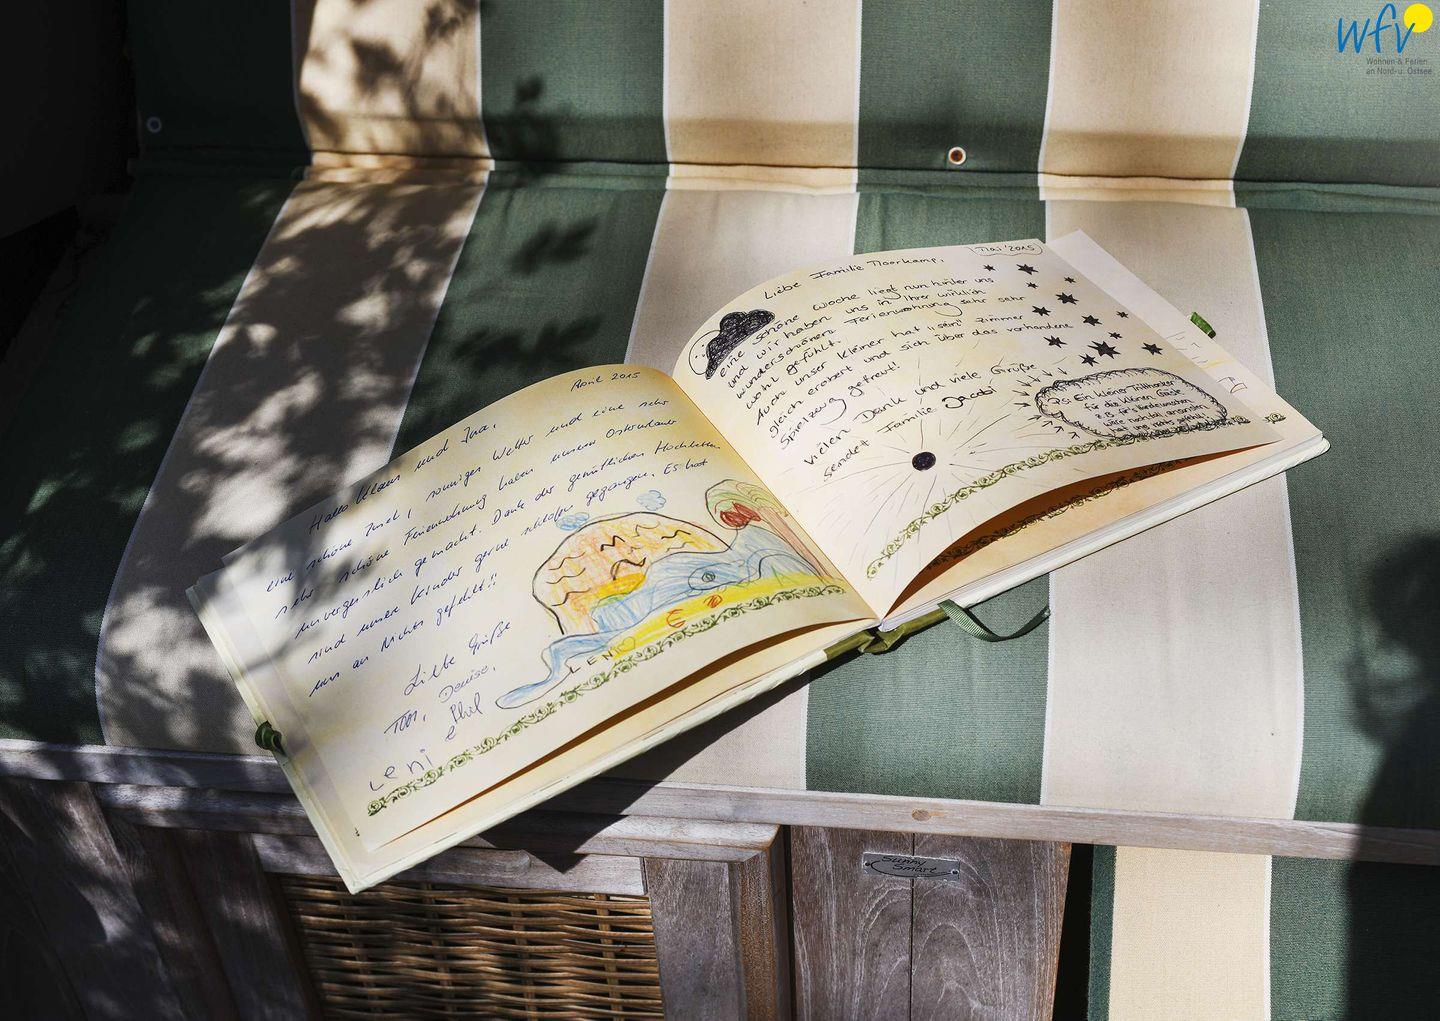 April 2015
Hallo Klaus und Ina,
eine schöne Insel, sonniges Wetter und eine sehr
sehr schöne Ferienwohnung haben unseren Osterurlaub
unvergesslich gemacht. Dank der gemütlichen Hochbetten
sind unsere Kinder gerne schlafen gegangen. Es hat
uns an Nichts gefehlt!!
Liebe Grüße
Tom, Denise,
Leni
LENI
Mai '2015
Liebe Familie Moorkamp,
eine schöne Woche liegt nun hinter uns
und wir haben uns in Ihrer wirklich
wunderschönen Ferienwohnung sehr sehr
wohl gefühlt.
Auch unser kleiner hat "sein" Zimmer
gleich erobert und sich über das vorhandene
Spielzeug gefreut!
Vielen Dank und viele Grüße
sendet Familie Jacobi
PS: Ein kleiner Tritthocker
für die kleinen Gäste
z.B. für's Händewaschen
wäre noch toll, ansonsten
hat uns nichts gefehlt!
Sunny
Smart
wfv
Wohnen & Ferien
an Nord- u. Ostsee